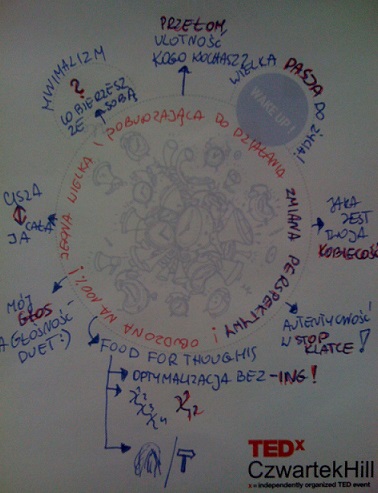 MINIMALIZM
?
CO BIERZESZ
ZE SOBĄ
PRZEŁOM,
ULOTNOŚĆ
KOGO KOCHASZ?
WIELKA PASJA DO ŻYCIA!
WAKE UP!
JEDNA WIELKA I POBUDZAJĄCA DO DZIAŁANIA
ZMIANA PERSPEKTYWY
! OBUDZONA NA 100% !
CISZA
CAŁA
JA
JAKA
JEST
TWOJA
KOBIECOŚĆ
MÓJ
GŁOS
A GŁOŚNOŚĆ
DUET:)
AUTENTYCZNOŚĆ
W STOP
KLATCE!
FOOD FOR THOUGHTS
OPTYMALIZACJA BEZ-ING!
TEDx
CzwartekHill
x = independently organized TED event